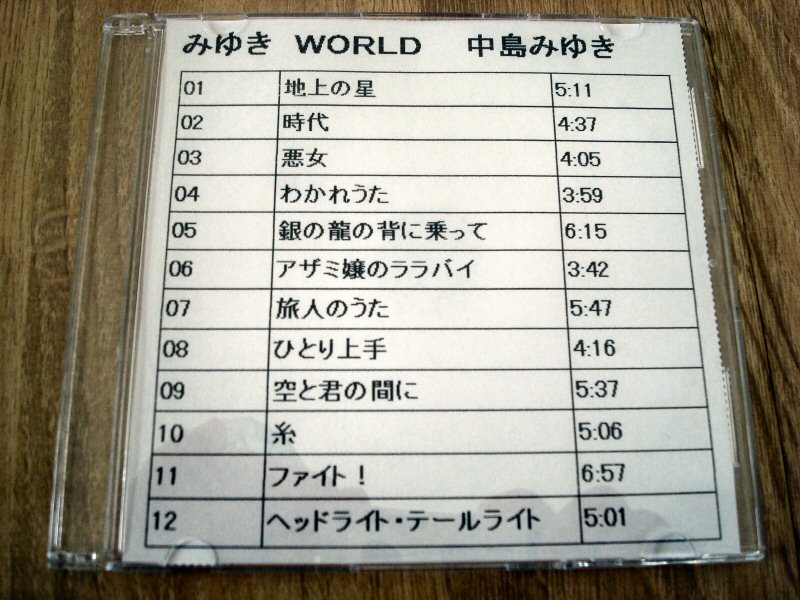 みゆき WORLD 中島みゆき
01 地上の星 5:11
02 時代 4:37
03 悪女 4:05
04 わかれうた 3:59
05 銀の龍の背に乗って 6:15
06 アザミ嬢のララバイ 3:42
07 旅人のうた 5:47
08 ひとり上手 4:16
09 空と君の間に 5:37
10 糸 5:06
11 ファイト！ 6:57
12 ヘッドライト・テールライト 5:01